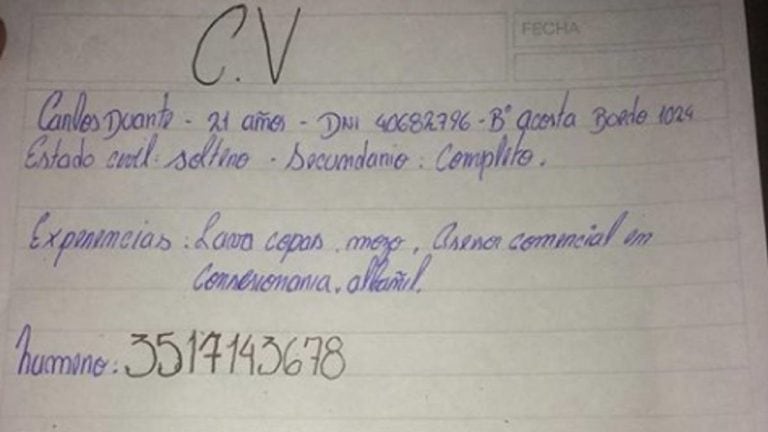 FECHA
C.V
Carlos Duarte - 21 años - DNI 40682796 - Bº acosta Boedo 1024
Estado civil: soltero - Secundario: Completo.
Experiencias: Lava copas, mozo, Asesor comercial en
Conseсionaria, albañil.
numero: 3517143678